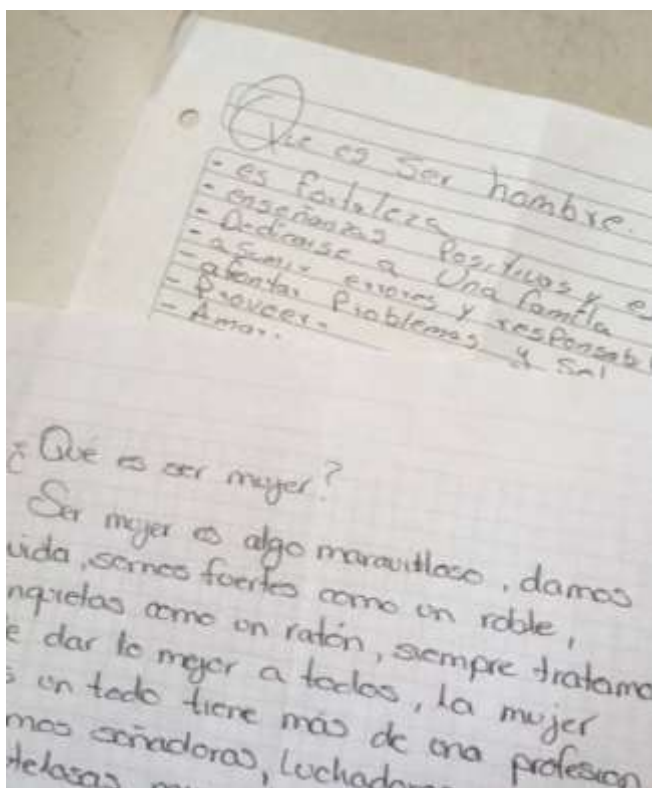 Que es Ser hombre.
- es fortaleza
- enseñanzas Positivas y e
- Dedicarse a Una familia
- asumir errores y responsab
- afentar Problemas y Sal
- Proveer.
- Amar.
¿Qué es ser mujer?
Ser mujer es algo maravilloso, damos
vida, somos fuertes como un roble,
nquietas como un ratón, siempre tratamo
e dar lo mejor a todos, la mujer
s un todo tiene más de una profesion
mos soñadoras, luchador